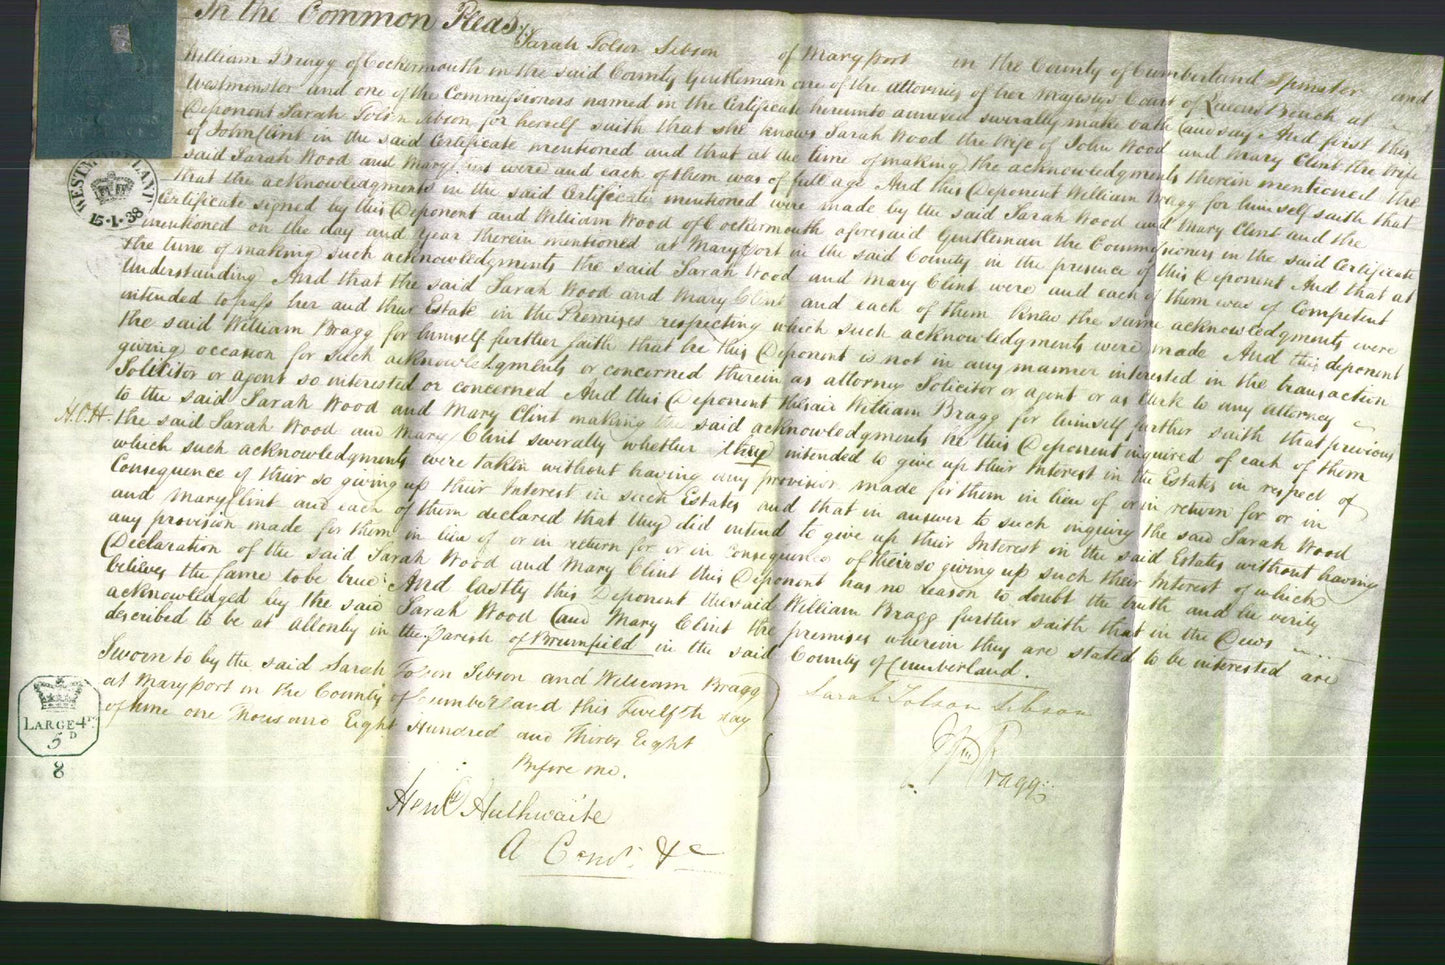 In the Common Pleas
Sarah Tolson Sibson of Maryport in the County of Cumberland Spinster and
William Bragg of Cockermouth in the said County Gentleman one of the attornies of her Majestys Court of Queens Bench at
Westminster and one of the Commissioners named in the Certificate hereunto annexed severally make oath and say And first this
Deponent Sarah Tolson Sibson for herself saith that she knows Sarah Wood the Wife of John Wood and Mary Clint the Wife
of John Clint in the said Certificate mentioned and that at the time of making the acknowledgments therein mentioned the
said Sarah Wood and Mary Clint were and each of them was of full age And this Deponent William Bragg for himself saith that
that the acknowledgments in the said Certificate mentioned were made by the said Sarah Wood and Mary Clint and the
Certificate signed by this Deponent and William Wood of Cockermouth aforesaid Gentleman the Commissioners in the said Certificate
mentioned on the day and year therein mentioned at Maryport in the said County in the presence of this Deponent And that at
the time of making such acknowledgments the said Sarah Wood and Mary Clint were and each of them was of Competent
Understanding And that the said Sarah Wood and Mary Clint and each of them knew the same acknowledgments were
intended to pass her and their Estate in the Premises respecting which such acknowledgments were made And this deponent
the said William Bragg for himself further saith that he this Deponent is not in any manner interested in the transaction
giving occasion for such acknowledgments or concerned therein as attorney Solicitor or agent or as Clerk to any attorney
Solicitor or agent so interested or concerned And this Deponent the said William Bragg for himself further saith that previous
to the said Sarah Wood and Mary Clint making the said acknowledgments he this Deponent inquired of each of them
H.C.H. the said Sarah Wood and Mary Clint severally whether they intended to give up their Interest in the Estates in respect of
which such acknowledgments were taken without having any provision made for them in lieu of or in return for or in
Consequence of their so giving up their Interest in such Estates and that in answer to such inquiry the said Sarah Wood
and Mary Clint and each of them declared that they did intend to give up their Interest in the said Estates without having
any provision made for them in lieu of or in return for or in Consequence of their so giving up such their Interest of which
Declaration of the said Sarah Wood and Mary Clint this Deponent has no reason to doubt the truth and he verily
believes the same to be true And lastly this Deponent the said William Bragg further saith that in the Deed
acknowledged by the said Sarah Wood and Mary Clint the premises wherein they are stated to be interested are
described to be at Allonby in the Parish of Bromfield in the said County of Cumberland.
Sworn to by the said Sarah Tolson Sibson and William Bragg
at Maryport in the County of Cumberland this Twelfth day
of June one Thousand Eight Hundred and Thirty Eight
Before me.
Sarah Tolson Sibson
Wm Bragg
A Comr. &c
WESTMORELAND
15·1·38
LARGE
5 D
8